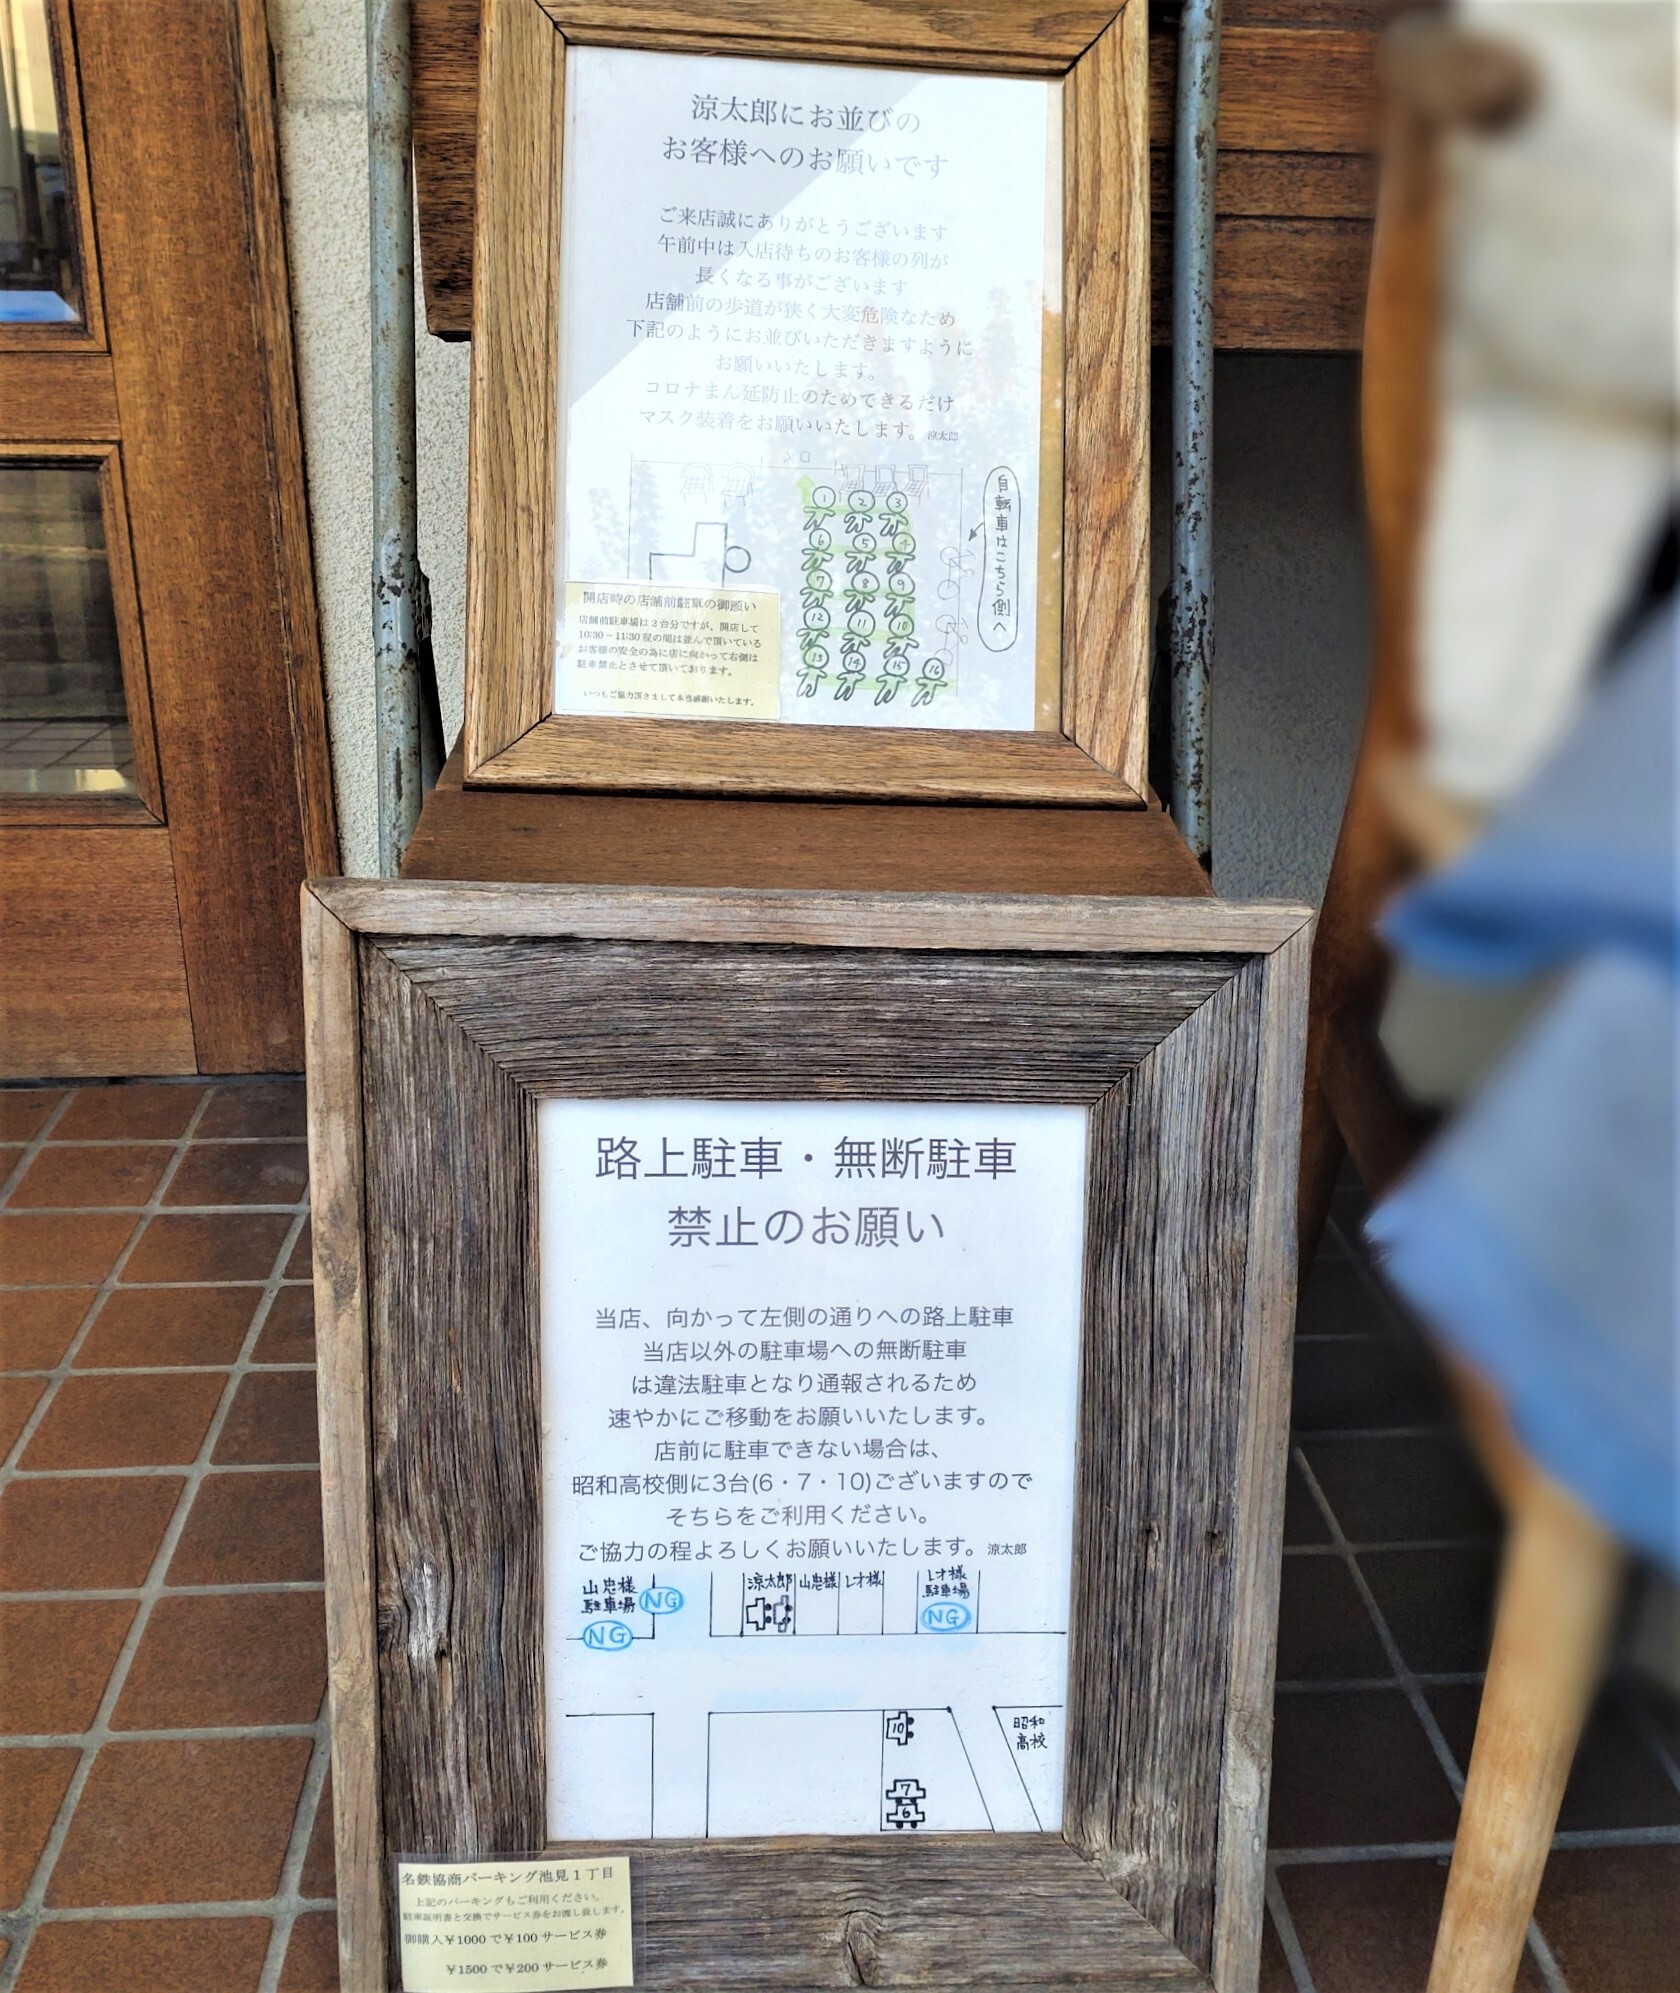 涼太郎にお並びの
お客様へのお願いです
ご来店誠にありがとうございます
午前中は入店待ちのお客様の列が
長くなる事がございます
店舗前の歩道が狭く大変危険なため
下記のようにお並びいただきますように
お願いいたします。
コロナまん延防止のためできるだけ
マスク装着をお願いいたします。涼太郎
入口
自転車はこちら側へ
1 2 3
6 5 4
7 8 9
12 11 10
13 14 15 16
開店時の店舗前駐車の御願い
店舗前駐車場は2台分ですが、開店して
10:30~11:30程の間は並んで頂いている
お客様の安全の為に店に向かって右側は
駐車禁止とさせて頂いております。
いつもご協力頂きまして本当感謝いたします。
路上駐車・無断駐車
禁止のお願い
当店、向かって左側の通りへの路上駐車
当店以外の駐車場への無断駐車
は違法駐車となり通報されるため
速やかにご移動をお願いいたします。
店前に駐車できない場合は、
昭和高校側に3台(6・7・10)ございますので
そちらをご利用ください。
ご協力の程よろしくお願いいたします。涼太郎
山忠様
駐車場
NG
NG
涼太郎
山忠様
レオ様
レオ様
駐車場
NG
10
昭和
高校
7
6
名鉄協商パーキング池見1丁目
上記のパーキングもご利用ください。
駐車証明書と交換でサービス券をお渡し致します。
御購入¥1000で¥100サービス券
¥1500で¥200サービス券